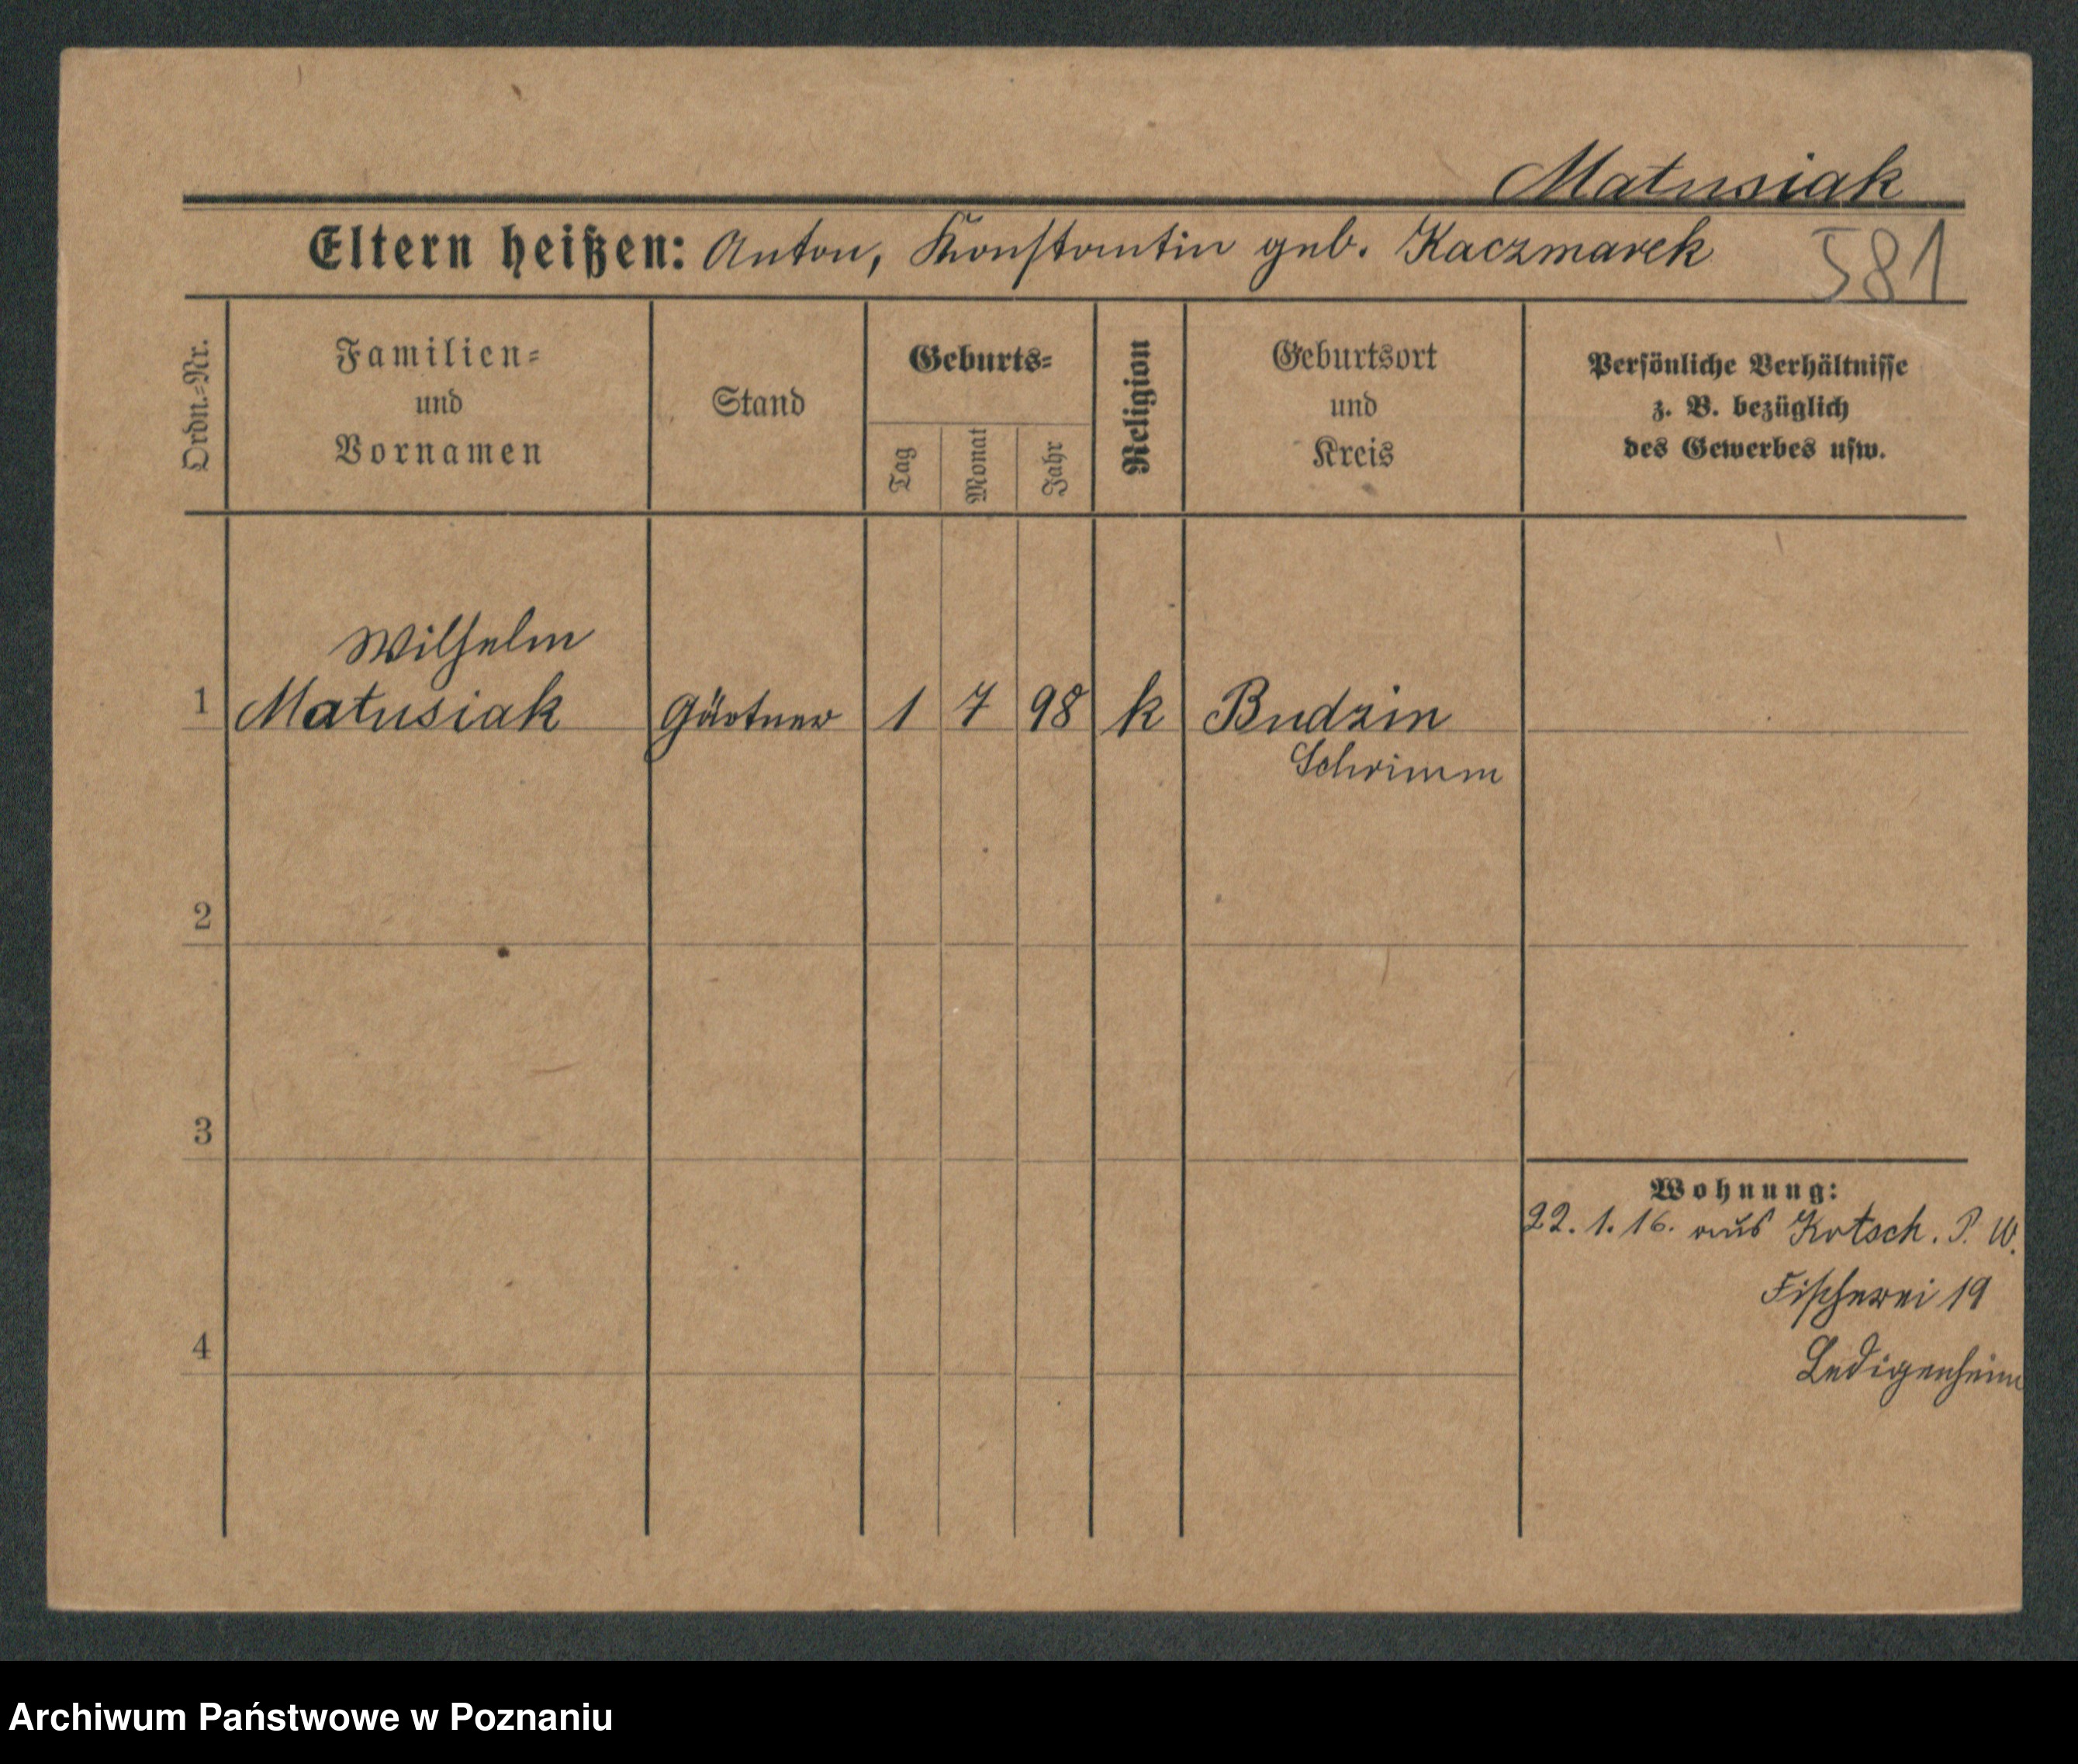 Matusiak
Eltern heißen: Anton, Konstantin geb. Kaczmarek 581
Ordn.-Nr.
Familien-
und
Vornamen
Stand
Geburts-
Tag
Monat
Jahr
Religion
Geburtsort
und
Kreis
Persönliche Verhältnisse
z. B. bezüglich
des Gewerbes usw.
Wilhelm
1 Matusiak Gärtner 1 7 98 k Budzin
Schrimm
2
3
Wohnung:
22. 1. 16. aus Kotsch. P. W.
Fischerei 19
4
Ledigenheim
Archiwum Państwowe w Poznaniu